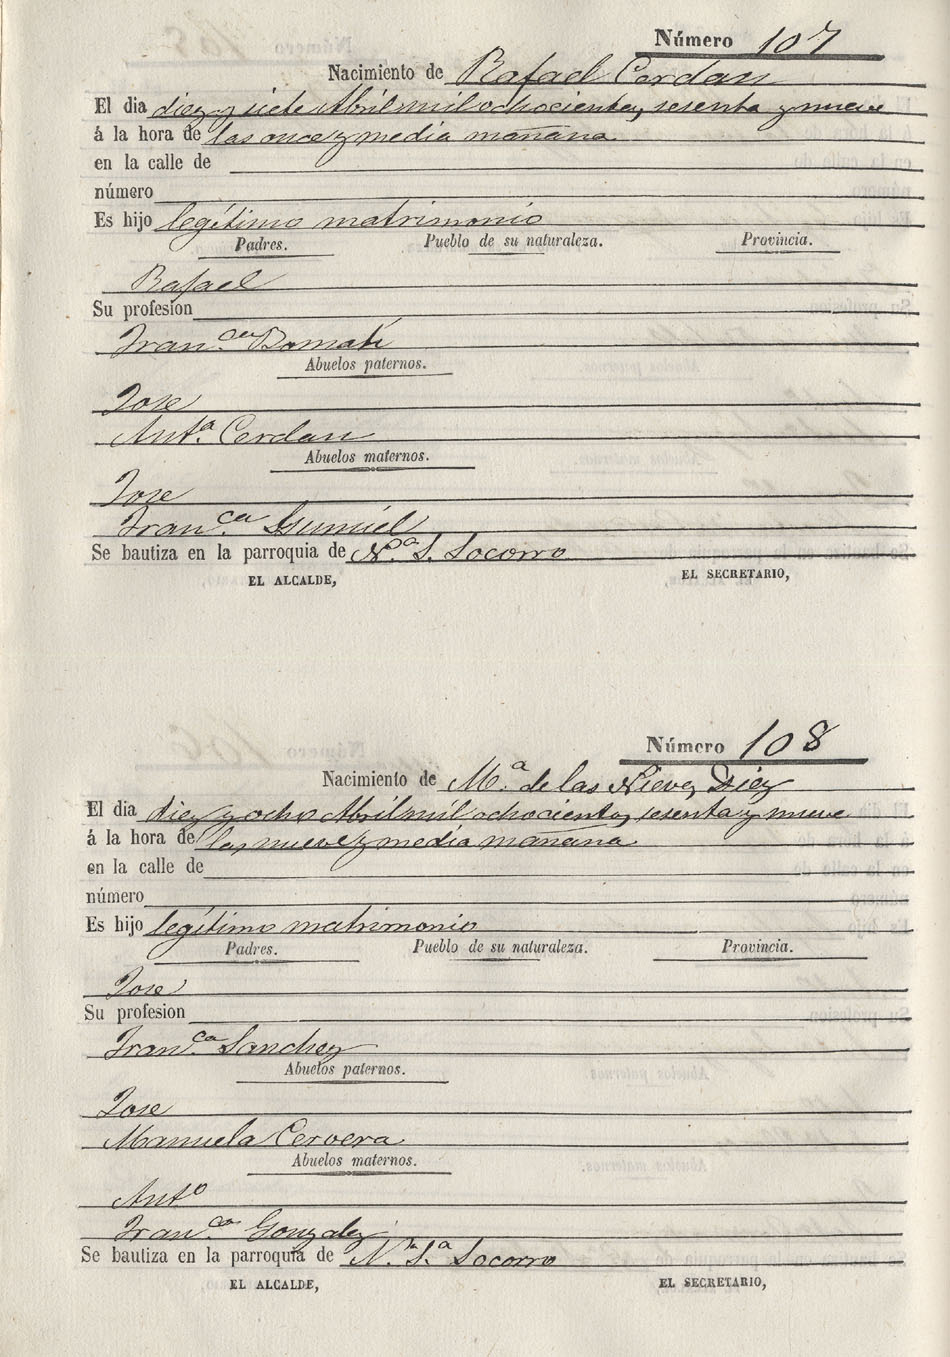 Número 107
Nacimiento de Rafael Cerdan
El dia diez y siete Abril mil ochocientos, sesenta y nueve
á la hora de las once y media mañana
en la calle de
número
Es hijo legítimo matrimonio
Padres. Pueblo de su naturaleza. Provincia.
Rafael
Su profesion
Fran.ca Domati
Abuelos paternos.
Jose
Ant.a Cerdan
Abuelos maternos.
Jose
Fran.ca Gumiel
Se bautiza en la parroquia de N.a S. Socorro
EL ALCALDE, EL SECRETARIO,
Número 108
Nacimiento de M.a de las Nieves Diez
El dia diez y ocho Abril mil ochocientos, sesenta y nueve
á la hora de las nueve y media mañana
en la calle de
número
Es hijo legítimo matrimonio
Padres. Pueblo de su naturaleza. Provincia.
Jose
Su profesion
Fran.ca Sanchez
Abuelos paternos.
Jose
Manuela Cervera
Abuelos maternos.
Ant.o
Fran.ca Gonzalez
Se bautiza en la parroquia de N.ra S.a Socorro
EL ALCALDE, EL SECRETARIO,